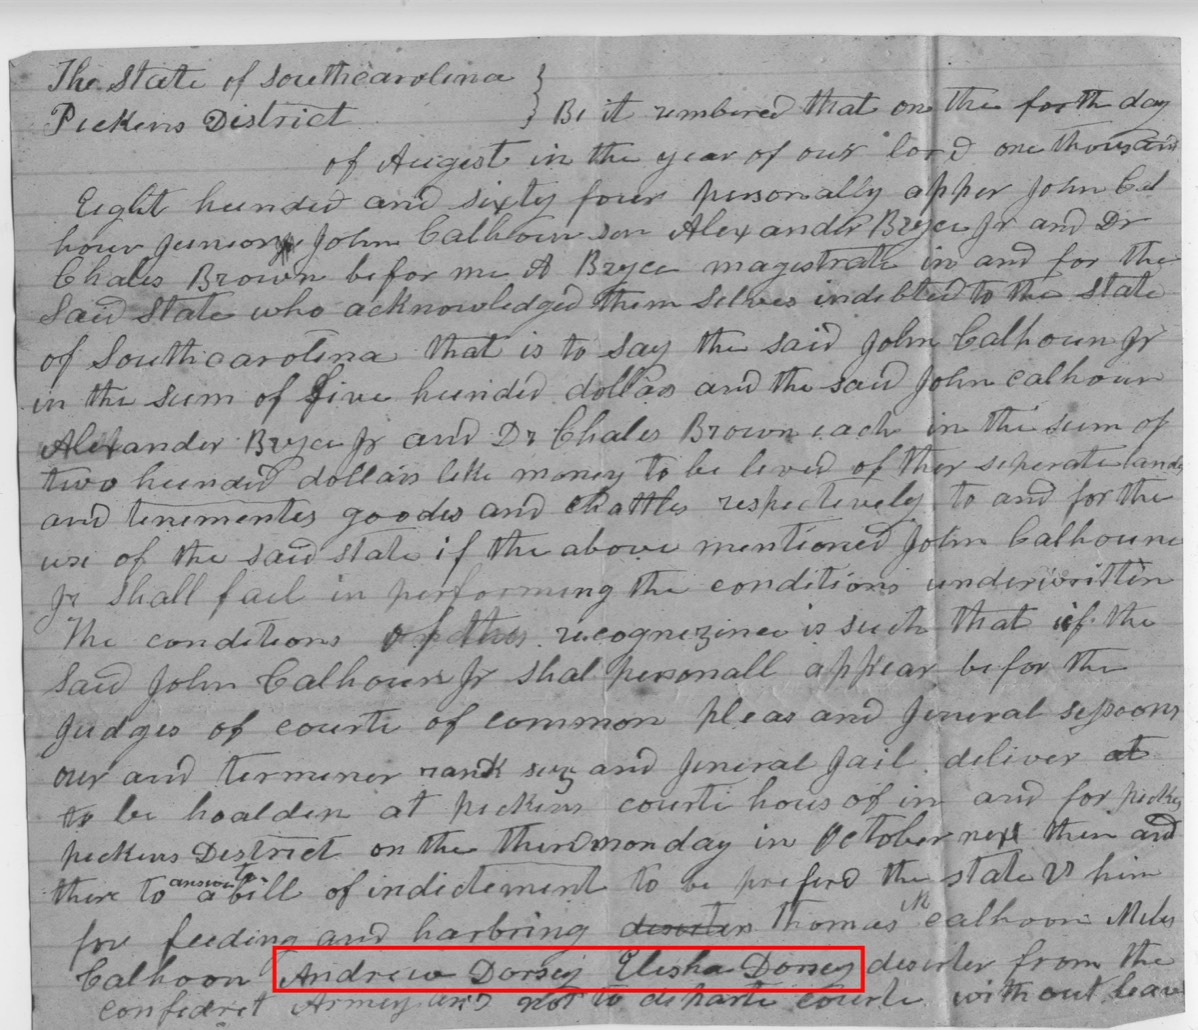 The State of Southcarolina }
Pickens District } Be it rembered that on the forth day
of August in the year of our lord one thousand
Eight hundid and sixty four personally apper John Cal
houn junior John Calhoun sen Alexander Bryce Jr and Dr
Chales Brown befor me A Bryce magistrate in and for the
Said State who acknowledged them selves indebted to the state
of Southcarolina that is to say the said John Calhoun Jr
in the sum of five hundid dollars and the said John calhoun
Alexander Bryce Jr and Dr Chales Brown each in the sum of
two hundid dollars like money to be leved of ther seperate lands
and tenimentes goodes and Chattles respectively to and for the
use of the said state if the above mentioned John Calhoune
Jr Shall fail in performing the conditions underwrittin
The conditions of this recognizince is such that if the
Said John Calhoun Jr shal personall appear befor the
Judges of courte of common pleas and Jeneral sessoons
our and terminer and Jeneral Jail deliver at
to be hoalden at pickens courte hous of in and for picke
pickens District on the third monday in October next then and
there to answer to a bill of indictement to be preferd the state vs him
for feeding and harbring deserters Thomas M calhoon Miles
Calhoon Andrew Dorsey Elisha Dorsey deserter from the
confedret Army and not to departe courte without leave